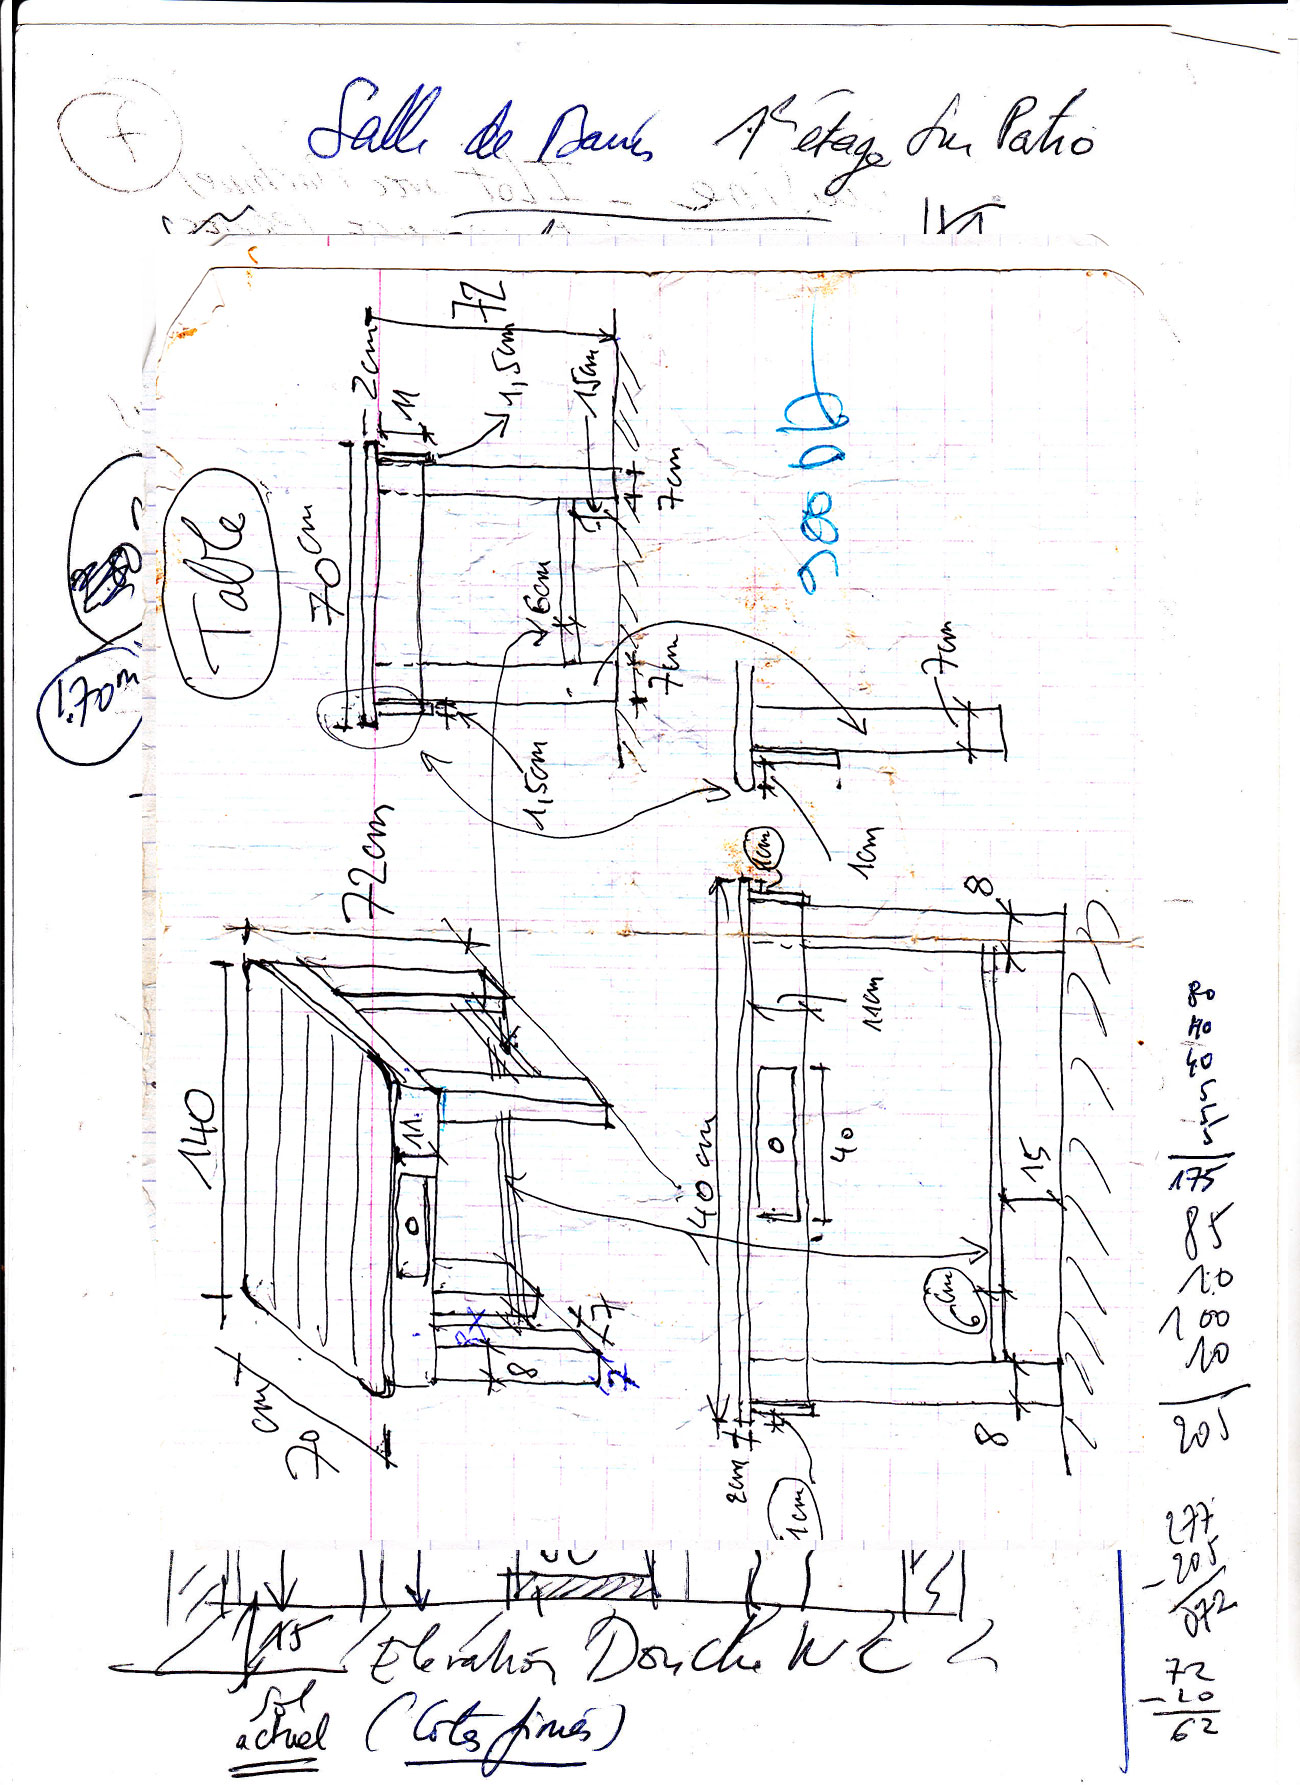 7
Salle de Bains 1er étage sur Patio
Table
1.70m
70cm
2cm
11
72
1,5cm
15cm
7cm
6cm
7cm
1,5cm
900 DH
7cm
1cm
72cm
140
11
70 cm
8
7
7
1cm
140 cm
11cm
40
8
15
6cm
8
2cm
1cm
80
40
40
175
85
10
100
10
205
277
- 205
072
72
- 10
62
15
Elévation Douche WC
Sol
actuel
(Cotes finies)